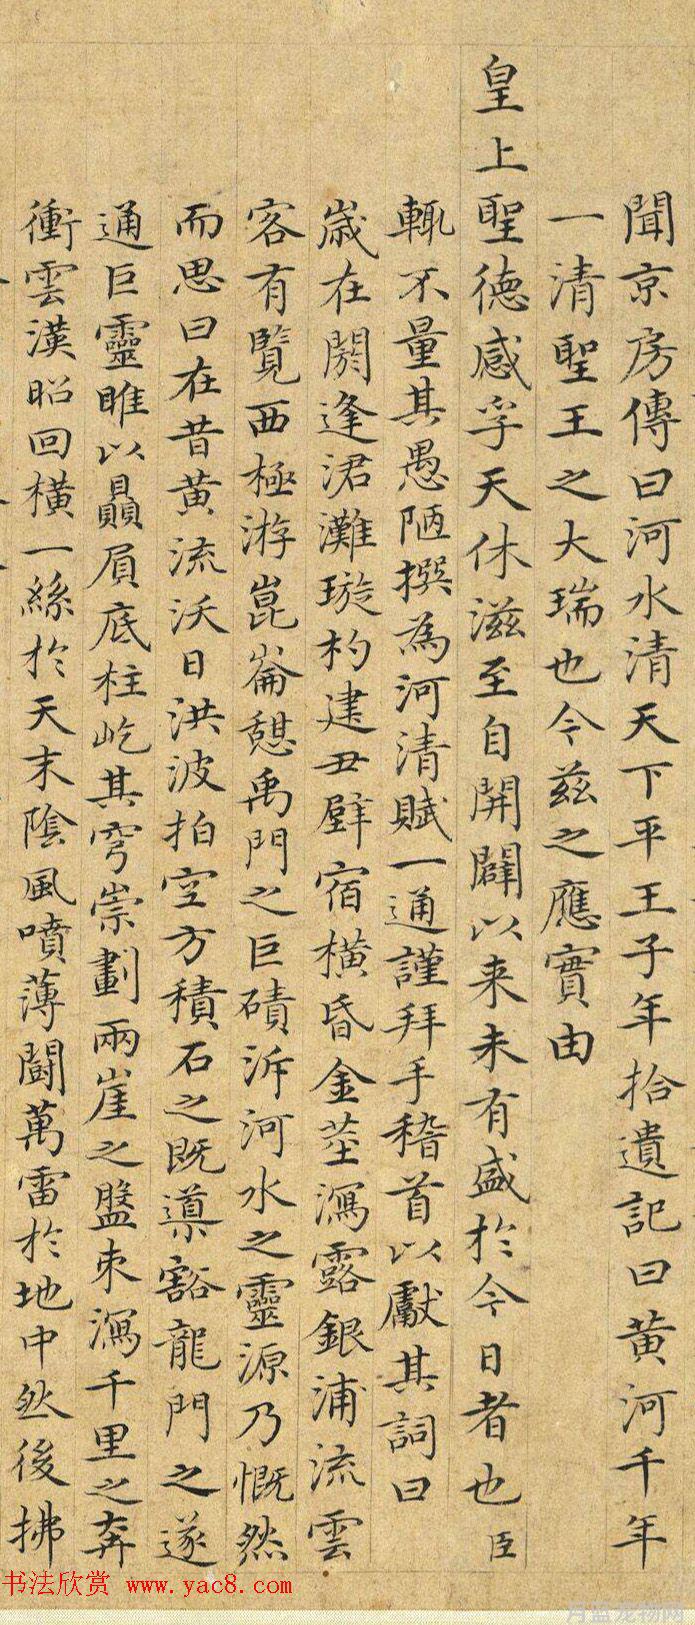 聞京房傳曰河水清天下平王子年拾遺記曰黃河千年
一清聖王之大瑞也今茲之應實由
皇上聖德感孚天休滋至自開闢以来未有盛於今日者也臣
輒不量其愚陋撰為河清賦一通謹拜手稽首以獻其詞曰
歲在閼逢涒灘璇杓建丑壁宿橫昏金莖瀉露銀浦流雲
客有覽西極游崑崙憩禹門之巨磧泝河水之靈源乃慨然
而思曰在昔黃流沃日洪波拍空方積石之既導豁龍門之遂
通巨靈睢以贔屓底柱屹其穹崇劃兩崖之盤束瀉千里之奔
衝雲漢昭回橫一絲於天末陰風噴薄鬪萬雷於地中然後拂
书法欣赏 www.yac8.com
月监宠物网